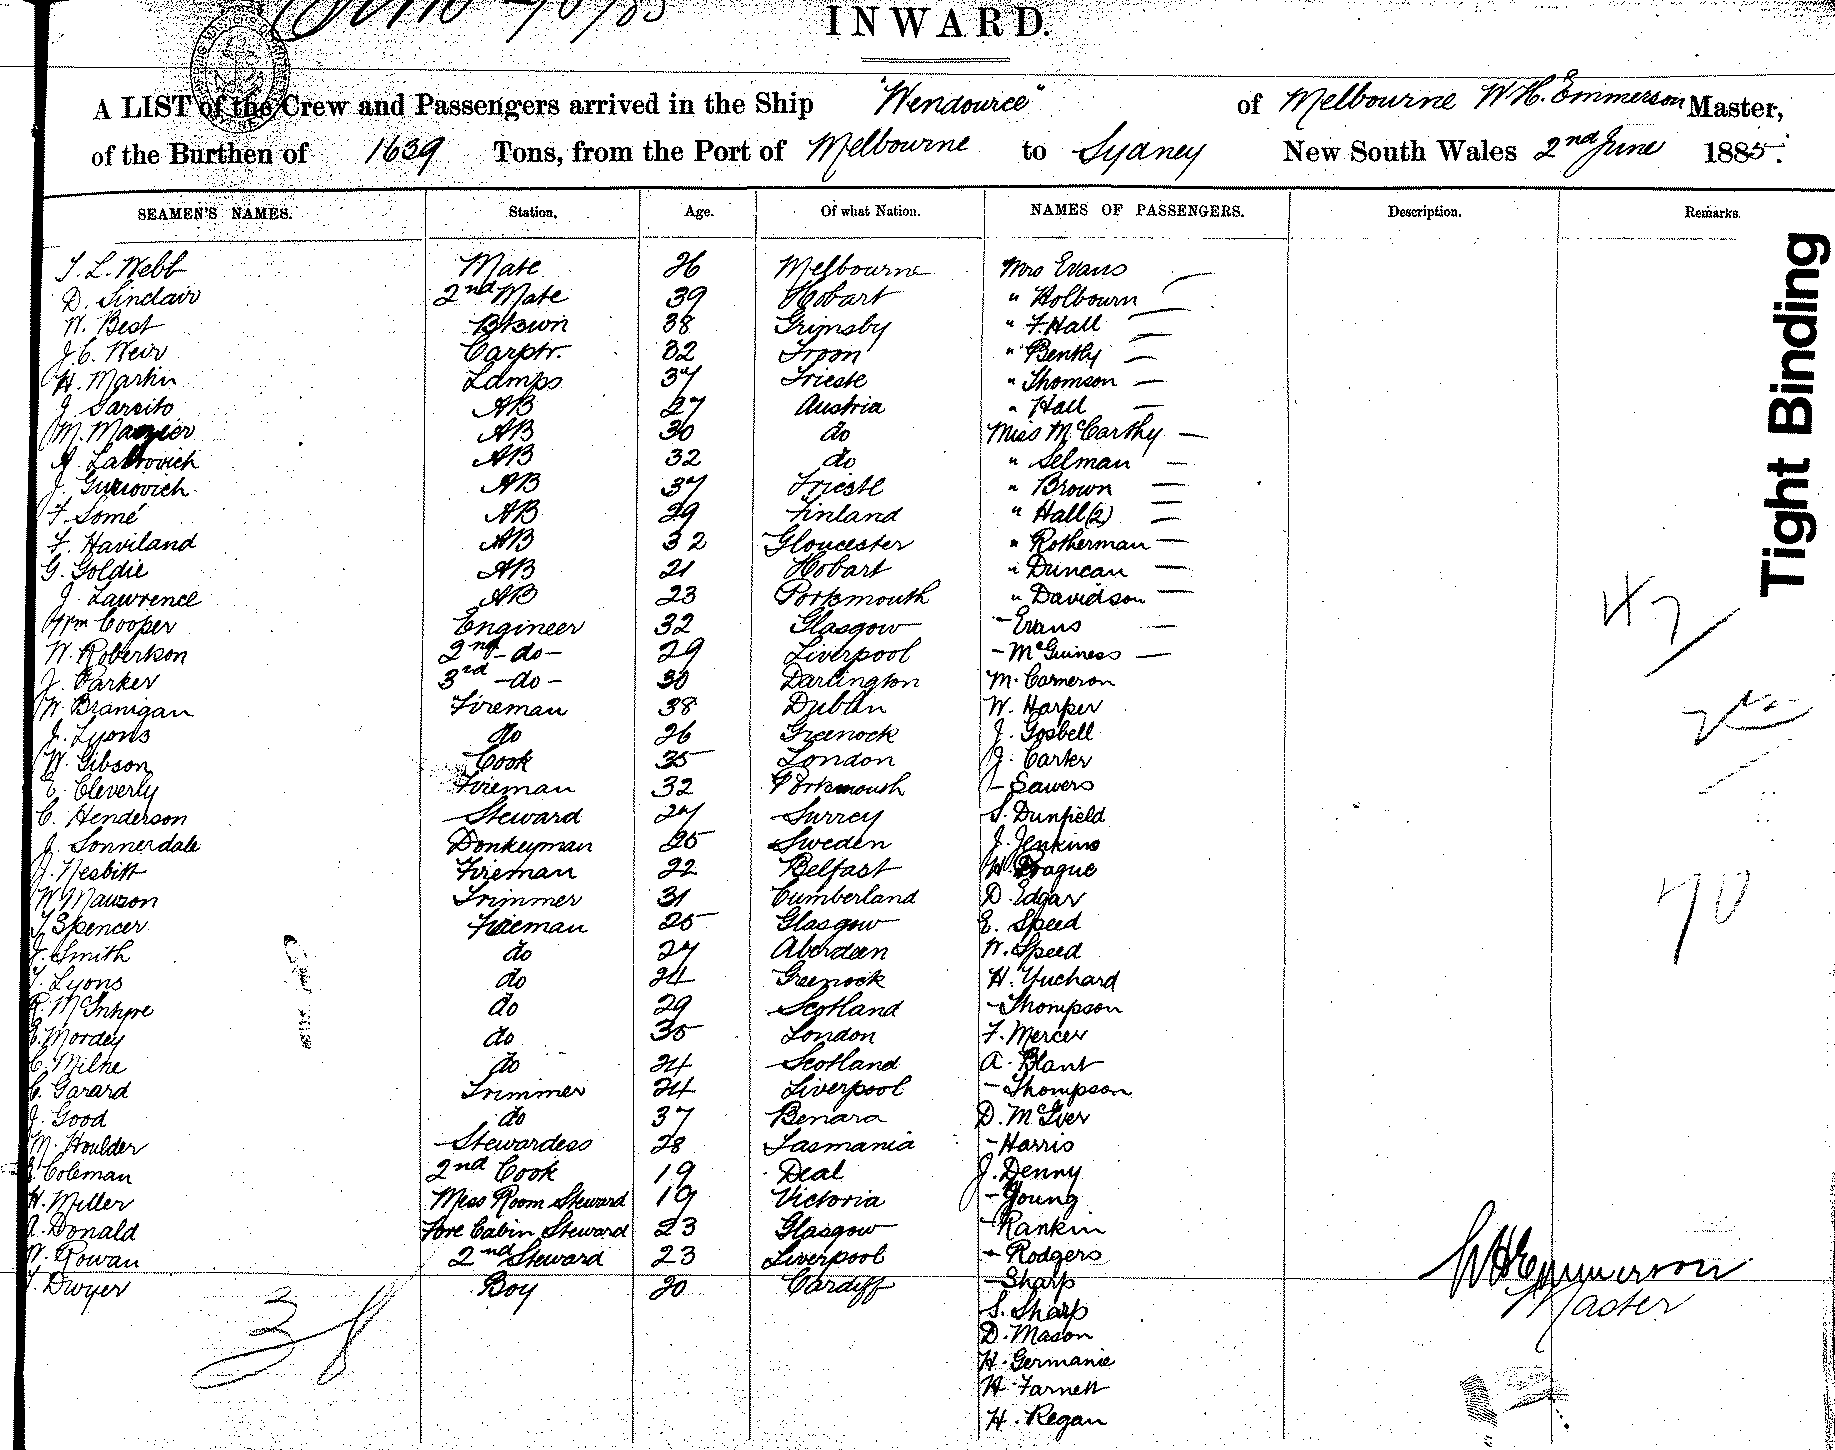 INWARD.
A LIST of the Crew and Passengers arrived in the Ship "Wendouree" of Melbourne W.H. Emmerson Master,
of the Burthen of 1639 Tons, from the Port of Melbourne to Sydney New South Wales 2nd June 1885.
SEAMEN'S NAMES. Station. Age. Of what Nation. NAMES OF PASSENGERS. Description. Remarks.
T. L. Webb Mate 26 Melbourne Mrs Evans —
D. Sinclair 2nd Mate 39 Hobart " Holbourn —
W. Best Btswn 38 Grimsby " F. Hall —
J. C. Weir Carptr. 32 Troon " Bently —
H. Martin Lamps 37 Trieste " Thomson —
J. Sarsito AB 27 Austria " Hall —
M. AB 30 do Miss McCarthy —
AB 32 do " Selman —
J. AB 37 Trieste " Brown —
F. Somé AB 29 Finland " Hall (2) —
F. Haviland AB 32 Gloucester " Rotherman —
G. Goldie AB 21 Hobart " Duncan —
J. Lawrence AB 23 Portsmouth " Davidson —
Wm Cooper Engineer 32 Glasgow – Evans —
W. Robertson 2nd –do– 29 Liverpool – McGuiness —
J. Parker 3rd –do– 30 Darlington M. Cameron
W. Branigan Fireman 38 Dublin W. Harper
J. Lyons do 26 Greenock J. Gosbell
W. Gibson Cook 35 London J. Carter
E. Cleverly Fireman 32 Portsmouth – Sawers
C. Henderson Steward 27 Surrey S. Dunfield
J. Sonnerdale Donkeyman 25 Sweden J. Jenkins
J. Nesbitt Fireman 22 Belfast H. Prague
W. Mawson Trimmer 31 Cumberland D. Edgar
T. Spencer Fireman 25 Glasgow E. Speed
J. Smith do 27 Aberdeen W. Speed
T. Lyons do 24 Greenock H. Yuchard
R. McIntyre do 29 Scotland – Thompson
E. Mordey do 35 London F. Mercer
C. Milne do 24 Scotland A. Plant
C. Garard Trimmer 24 Liverpool – Thompson
J. Good do 37 Benara D. McIver
M. Houlder Stewardess 28 Tasmania – Harris
Coleman 2nd Cook 19 Deal J. Denny
H. Miller Mess Room Steward 19 Victoria – Young
A. Donald Fore Cabin Steward 23 Glasgow – Rankin
W. Rowan 2nd Steward 23 Liverpool – Rodgers
T. Dwyer Boy 20 Cardiff – Sharp
S. Sharp
D. Mason
H. Germanie
H. Farnell
H. Regan
38
47
70
W H Emmerson
Master
Tight Binding